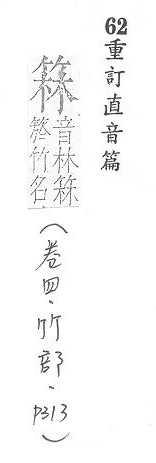 62重訂直音篇
箖
音林箖
箊竹名
(卷四·竹部·P313)